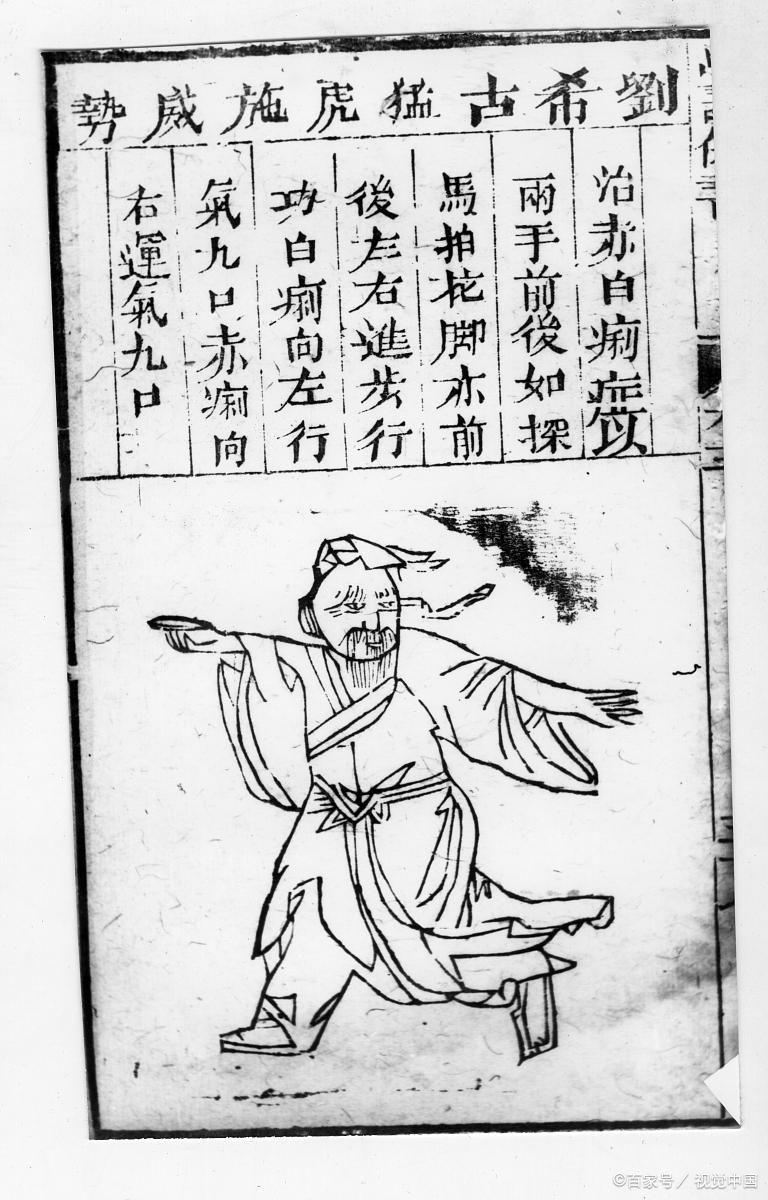 劉希古猛虎施威勢
治赤白痢症以
兩手前後如探
馬拍花脚亦前
後左右進步行
功白痢向左行
氣九口赤痢向
右運氣九口
©百家号／视觉中国